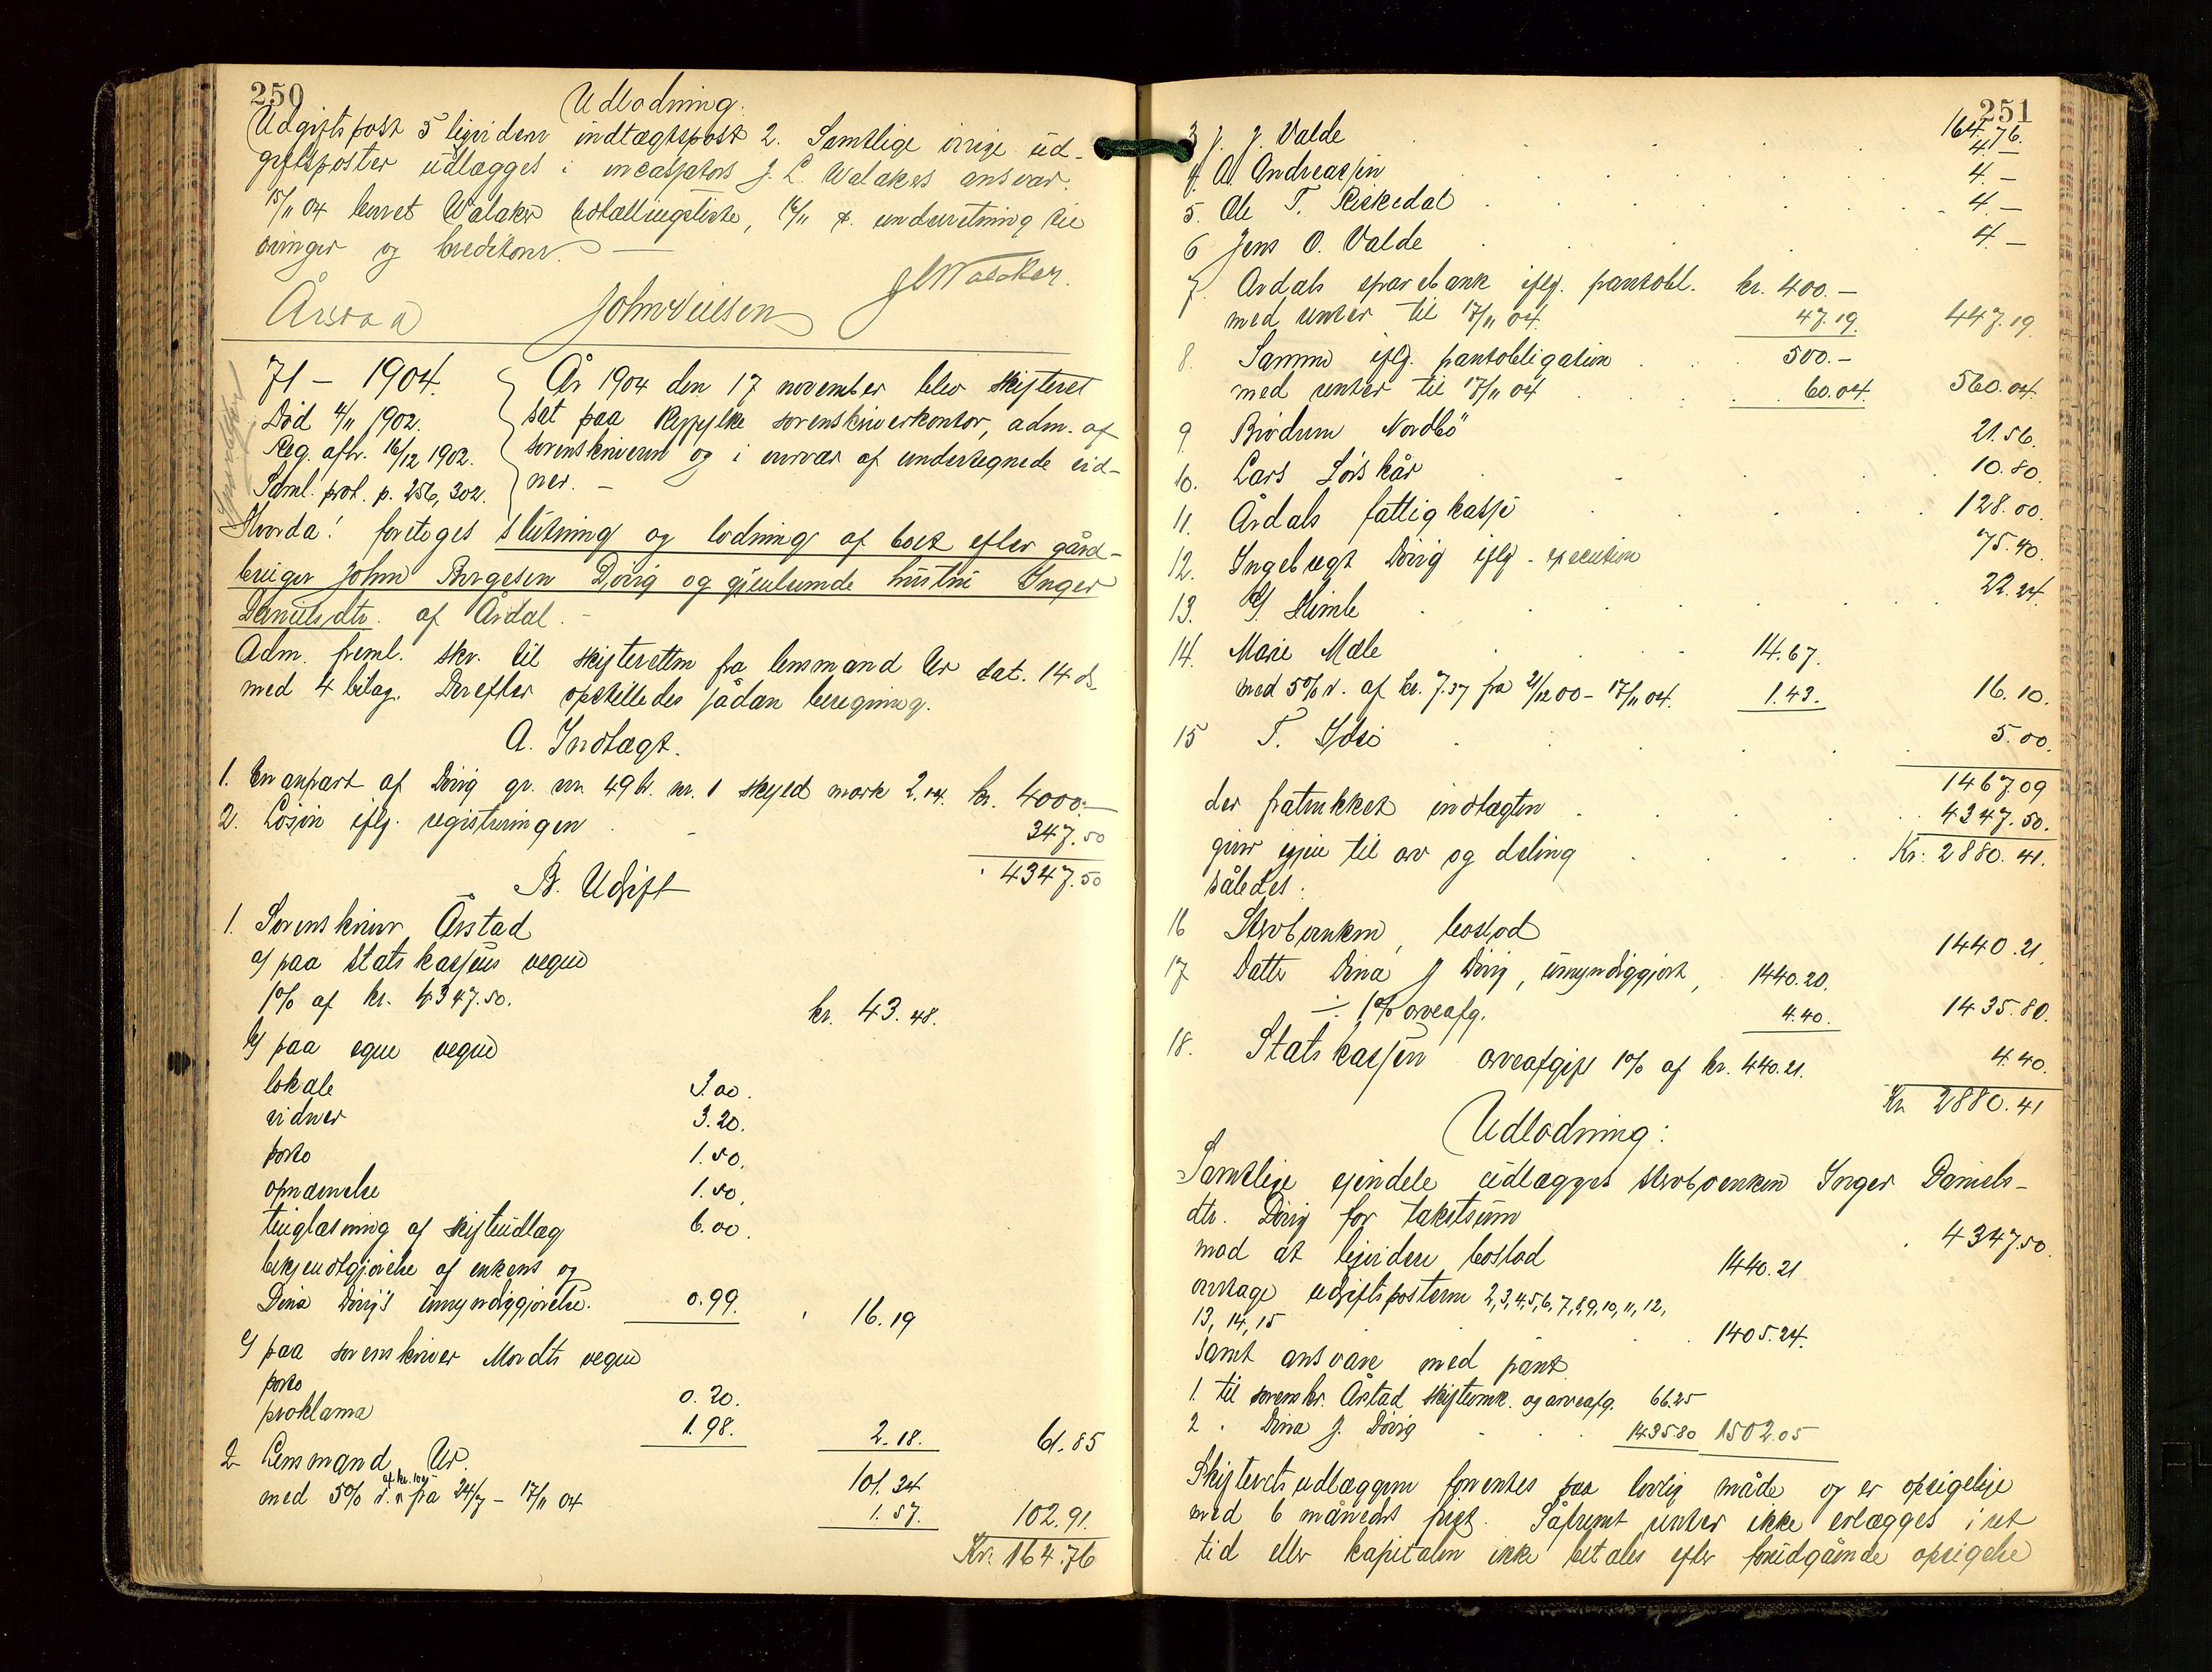 250
Udlodning.
Udgiftspost 5 ligvidern indtægtspost 2. Samtlige øvrige ud-
giftsposter udlægges i incassators J. L. Walakers ansvar.
15/11 04 krevet Walaker udstællingsliste, 16/11 underretning til
arvinger og kreditorer. —
JLWalaker.
Årstad John Nielsen
71 – 1904.
Död 4/11 1902.
Reg. afh. 16/12 1902.
Saml. prot. p. 256, 302.
År 1904 den 17 november blev skifteret
sat paa Ryfylke sorenskriverkontor, adm. af
sorenskriveren og i overvær af undertegnede vid-
ner. —
Hvorda! foretoges slutning og lodning af boet efter gård-
bruger John Børgesen Dövig og gjenlevende hustru Inger
Danielsdtr. af Årdal. –
Adm. freml. skr. til skifteretten fra lensmand Ur dat. 14 ds.
med 4 bilag. Derefter opstilledes sådan beregning.
A. Indtægt.
1. En anpart af Dövig gr. nr. 49 br. nr. 1 skyld mark 2.04. kr. 4000.—
2. Lösöre iflg. registreringen 347.50
4347.50
B. Udgift
1. Sorenskriver Årstad
a/ paa Statskassens vegne
1% af kr. 4347.50. kr. 43.48.
b/ paa egne vegne
lokale 3.00.
vidner 3.20.
porto 1.50.
opnævnelse 1.50.
tinglæsning af skifteudlæg 6.00.
bekjendtgjörelse af enkens og
Dina Dövig's umyndiggjörelse. 0.99. 16.19
c/ paa sorenskriver Mordts vegne
porto 0.20.
proklama 1.98. 2.18. 61.85
2 Lensmand Ur. 101.34
med 5% r. af kr. 102 fra 24/7 – 17/11 04 1.57. 102.91.
Kr. 164.76
251
164.76.
3 J. J. Valde 4.–
4. A. Andreassen 4.–
5. Ole T. Riskedal 4.–
6 Jens O. Valde 4.–
7. Årdals sparebank iflg. pantobl. kr. 400.–
med renter til 17/11 04. 47.19. 447.19
8. Samme iflg. pantobligation 500.–
med renter til 17/11 04 60.04. 560.04.
9 Brödrene Nordbö 21.56.
10. Lars Lörskår 10.80.
11. Årdals fattigkasse 128.00.
12. Ingebregt Dövig iflg. execution 75.40.
13. G. Himle 22.24.
14. Marie Mæle 14.67.
med 5% r. af kr. 7.37 fra 21/12 00 – 17/11 04. 1.43. 16.10.
15 T. Idsö 5.00.
1467.09
der fratrukket indtægten 4347.50.
giver igjen til arv og deling Kr. 2880.41.
således:
16 Stervboenken, boslod 1440.21.
17 Datter Dina J Dövig, umyndiggjort, 1440.20.
÷ 1% arveafg. 4.40. 1435.80.
18. Statskassen arveafgift 1% af kr. 440.21. 4.40.
Kr. 2880.41
Udlodning:
Samtlige eiendele udlægges stervboenken Inger Daniels-
dtr. Dövig for takstsum 4347.50.
mod at ligvidere boslod 1440.21
overtage udgiftsposterne 2,3,4,5,6,7,8,9,10,11,12,
13, 14, 15 1405.24.
samt ansvare med pant
1. til sorenskr. Årstad skifteomk. og arveafg. 66.25
2 " Dina J. Dövig 1435.80 1502.05
Skifteretsudlæggene forrentes paa lovlig måde og er opsigelige
med 6 måneders frist. Såfremt renter ikke erlægges i ret
tid eller kapitalen ikke betales efter forudgående opsigelse